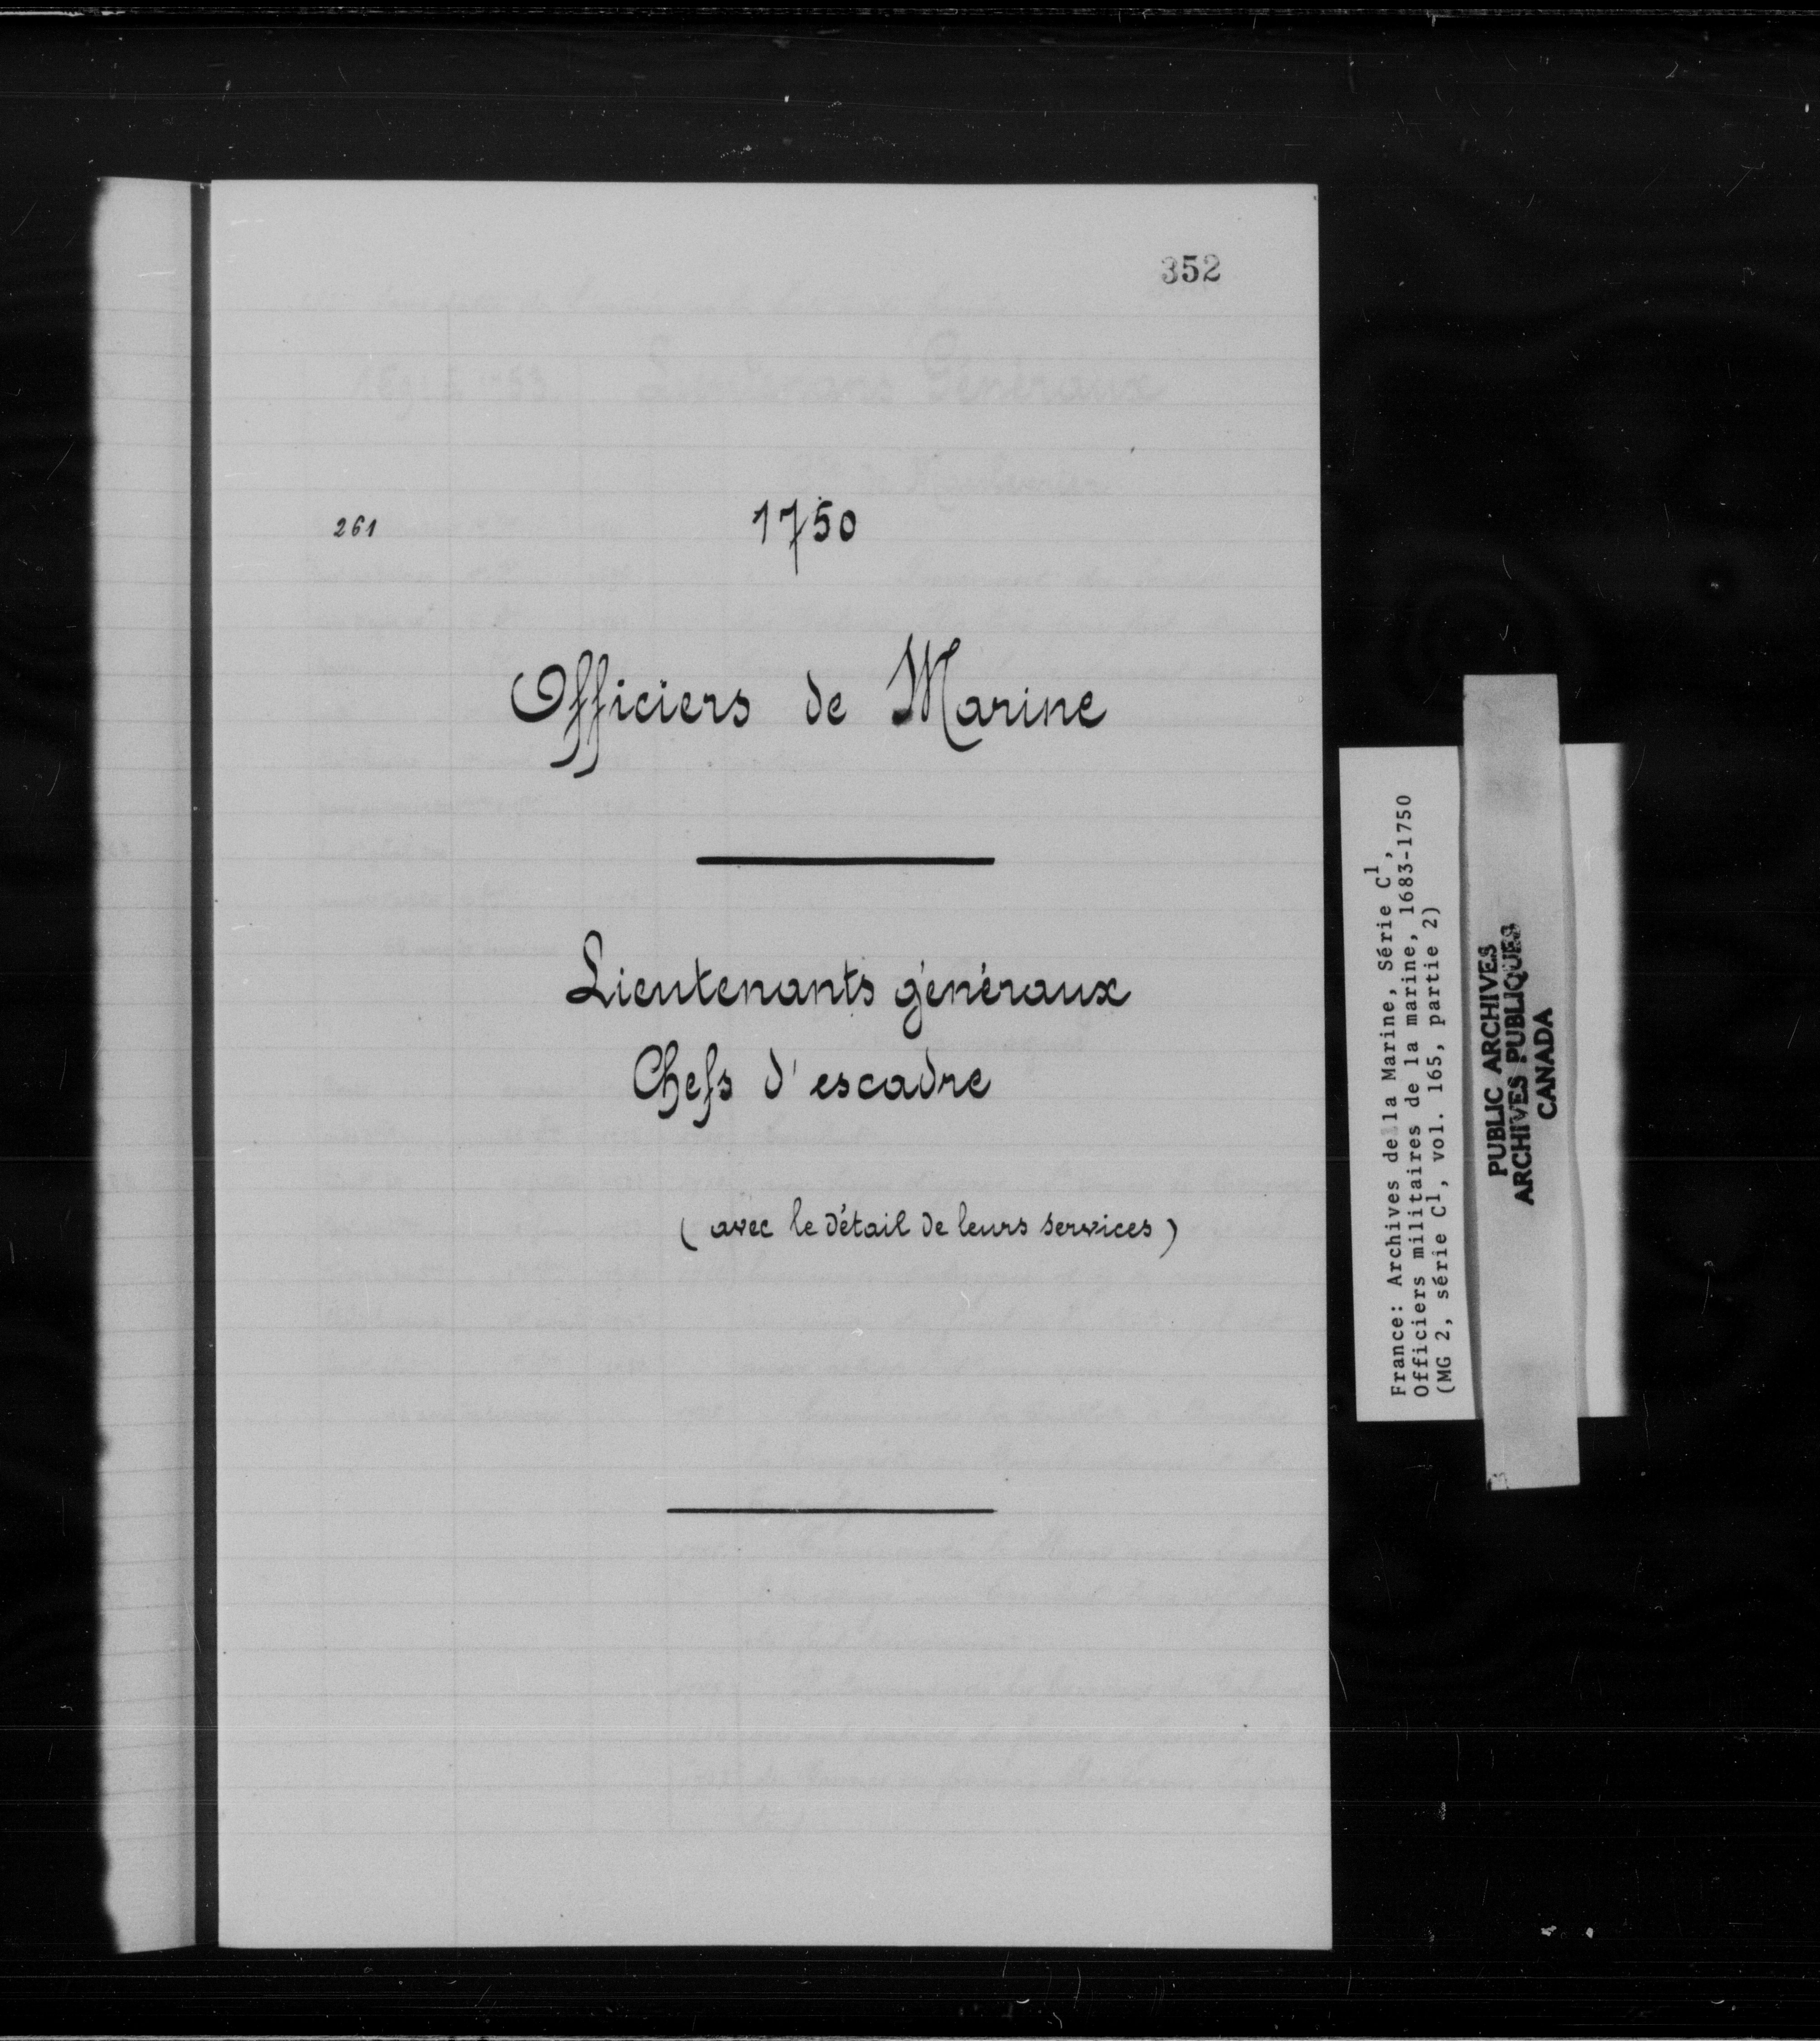 352
261
1750
Officiers de Marine
Lieutenants généraux
Chefs d'escadre
(avec le détail de leurs services)
France: Archives de la Marine, Série C1,
Officiers militaires de la marine, 1683-1750
(MG 2, série C1, vol. 165, partie 2)
PUBLIC ARCHIVES
ARCHIVES PUBLIQUES
CANADA